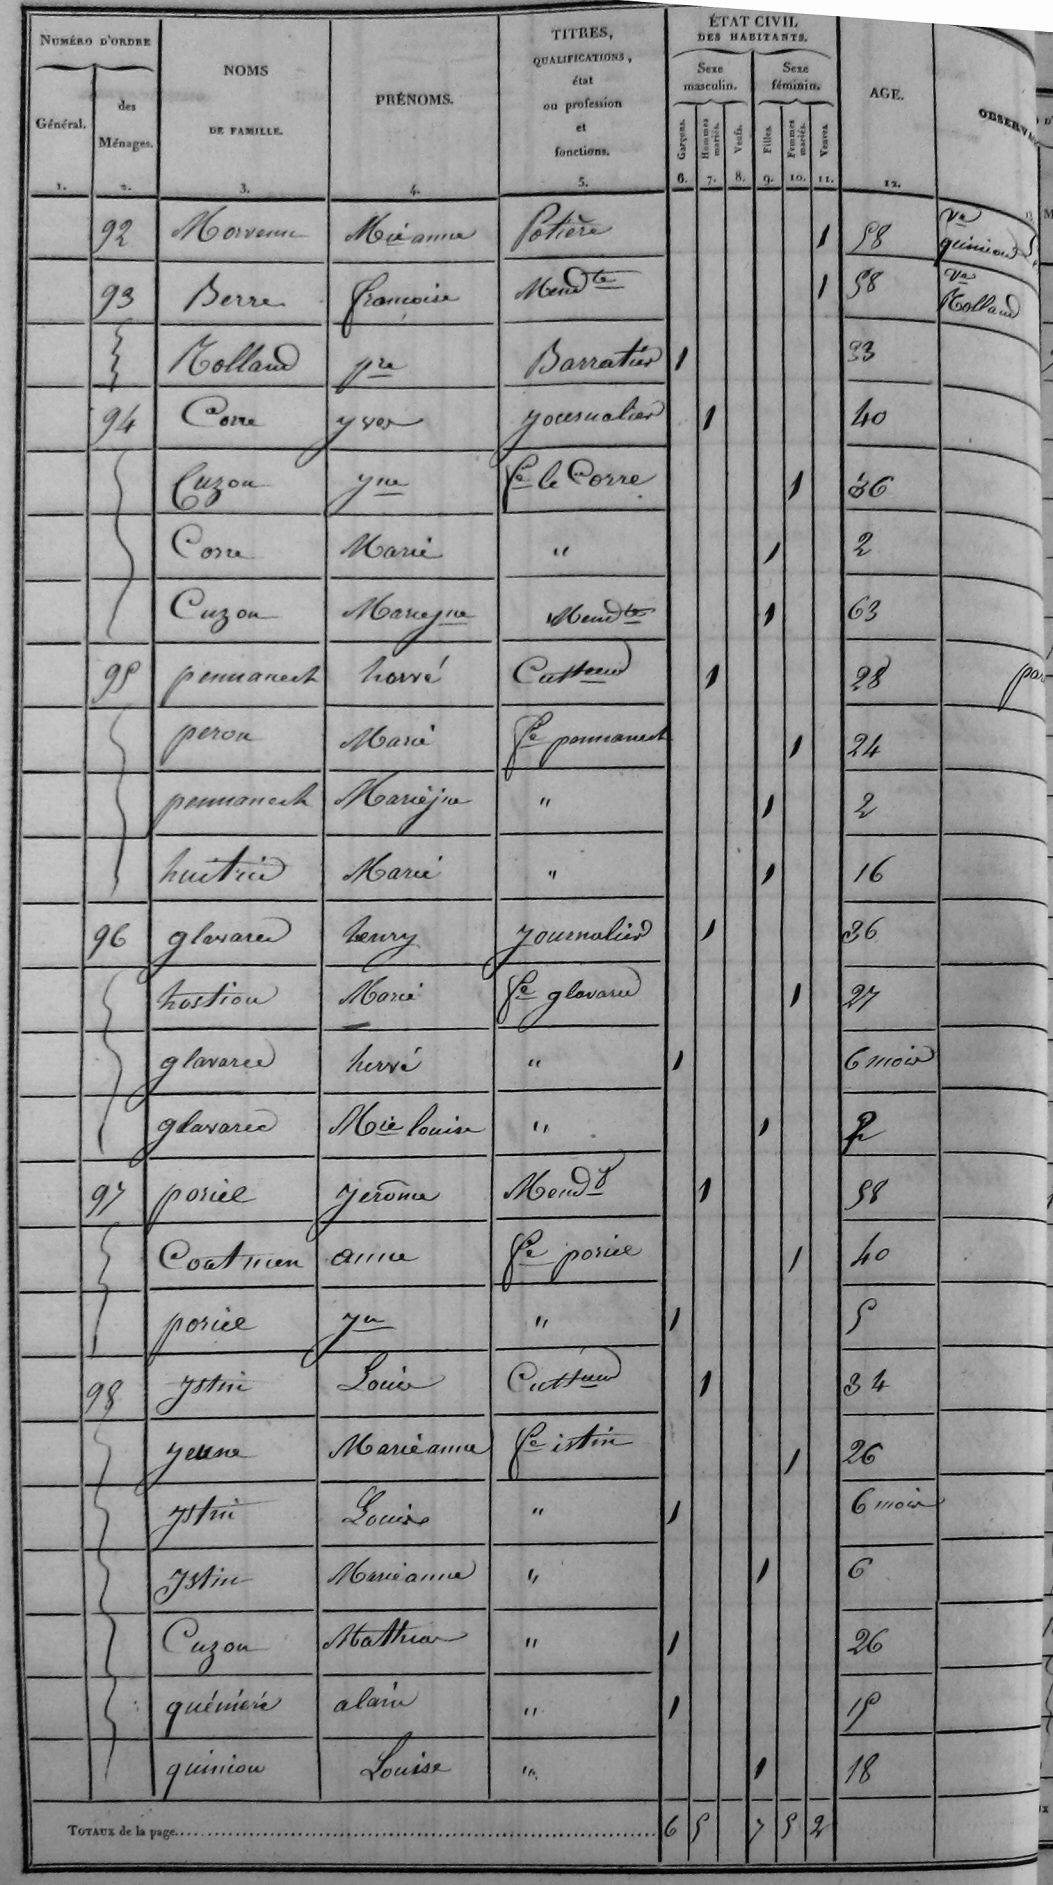 NUMÉRO D'ORDRE
Général.
des Ménages.
NOMS DE FAMILLE.
PRÉNOMS.
TITRES, QUALIFICATIONS, état ou profession et fonctions.
ÉTAT CIVIL DES HABITANTS.
Sexe masculin.
Sexe féminin.
Garçons.
Hommes mariés.
Veufs.
Filles.
Femmes mariées.
Veuves.
AGE.
OBSERVA
1. 2. 3. 4. 5. 6. 7. 8. 9. 10. 11. 12. 13.
92 Morvenn Mie anne Potière 1 58 Ve quiniou
93 Berre françoise Mendte 1 58 Ve Rolland
Rolland pre Barratier 1 33
94 Corre yves journalier 1 40
Cuzon yne fe le Corre 1 36
Corre Marie " 1 2
Cuzon Marie jne Mendte 1 63
95 pennanech hervé Cultteur 1 28
peron Marie fe pennanech 1 24
pennanech Marie jne " 1 2
huitric Marie " 1 16
96 glavarec henry journalier 1 36
hostiou Marie fe glavarec 1 27
glavarec hervé " 1 6 mois
glavarec Mie louise " 1
97 poriel jerôme Mendt 1 58
Coatmen anne fe poriel 1 40
poriel yn " 1 5
98 ystin Louis Cultteur 1 34
jeune Marie anne fe istin 1 26
ystin Louis " 1 6 mois
ystin Marie anne " 1 6
Cuzon Mathias " 1 26
quéméré alain " 1 15
quiniou Louise " 1 18
TOTAUX de la page 6 5 7 5 2